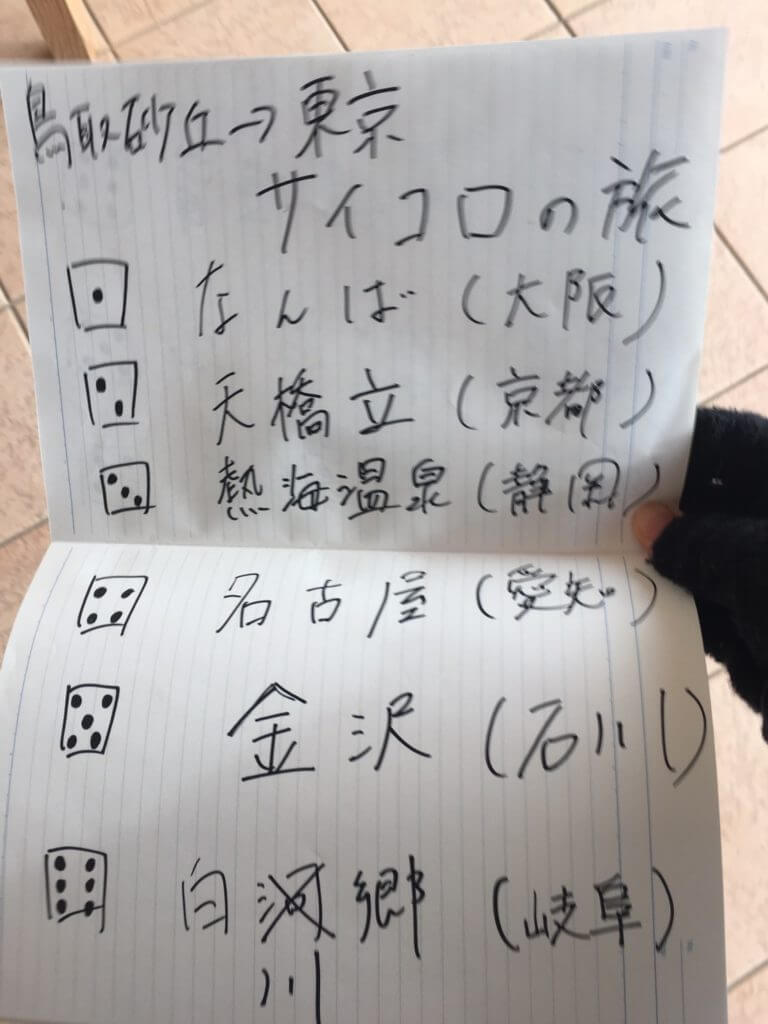 鳥取砂丘→東京
サイコロの旅
⚀ なんば(大阪)
⚁ 天橋立(京都)
⚂ 熱海温泉(静岡)
⚃ 名古屋(愛知)
⚄ 金沢(石川)
⚅ 白河郷(岐阜)
川